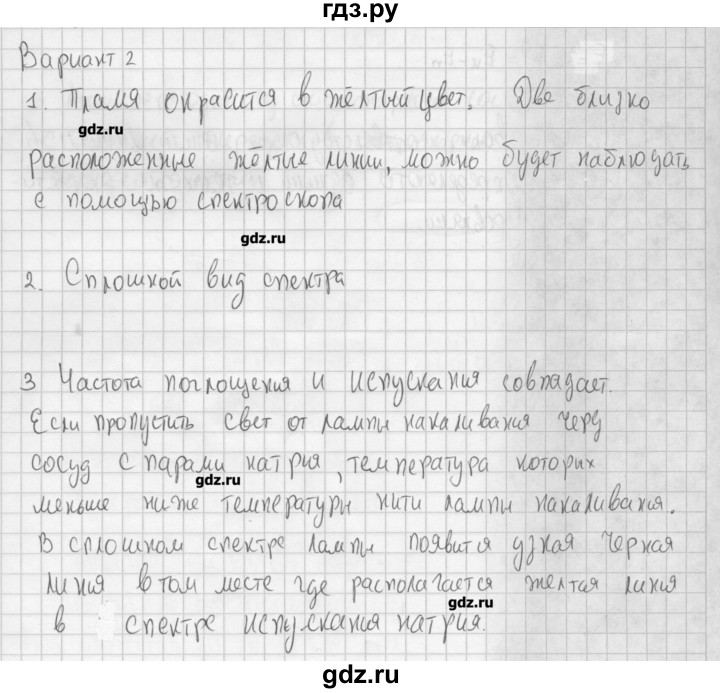 гдз.ру
Вариант 2
1. Пламя окрасится в жёлтый цвет. Две близко
gdz.ru
расположенные жёлтые линии, можно будет наблюдать
с помощью спектроскопа
gdz.ru
2. Сплошной вид спектра
3 Частота поглощения и испускания совпадает.
Если пропустить свет от лампы накаливания через
сосуд с парами натрия, температура которых
gdz.ru
меньше ниже температуры нити лампы накаливания.
В сплошном спектре лампы появится узкая черная
линия в том месте где располагается желтая линия
gdz.ru
в спектре испускания натрия.
gdz.ru